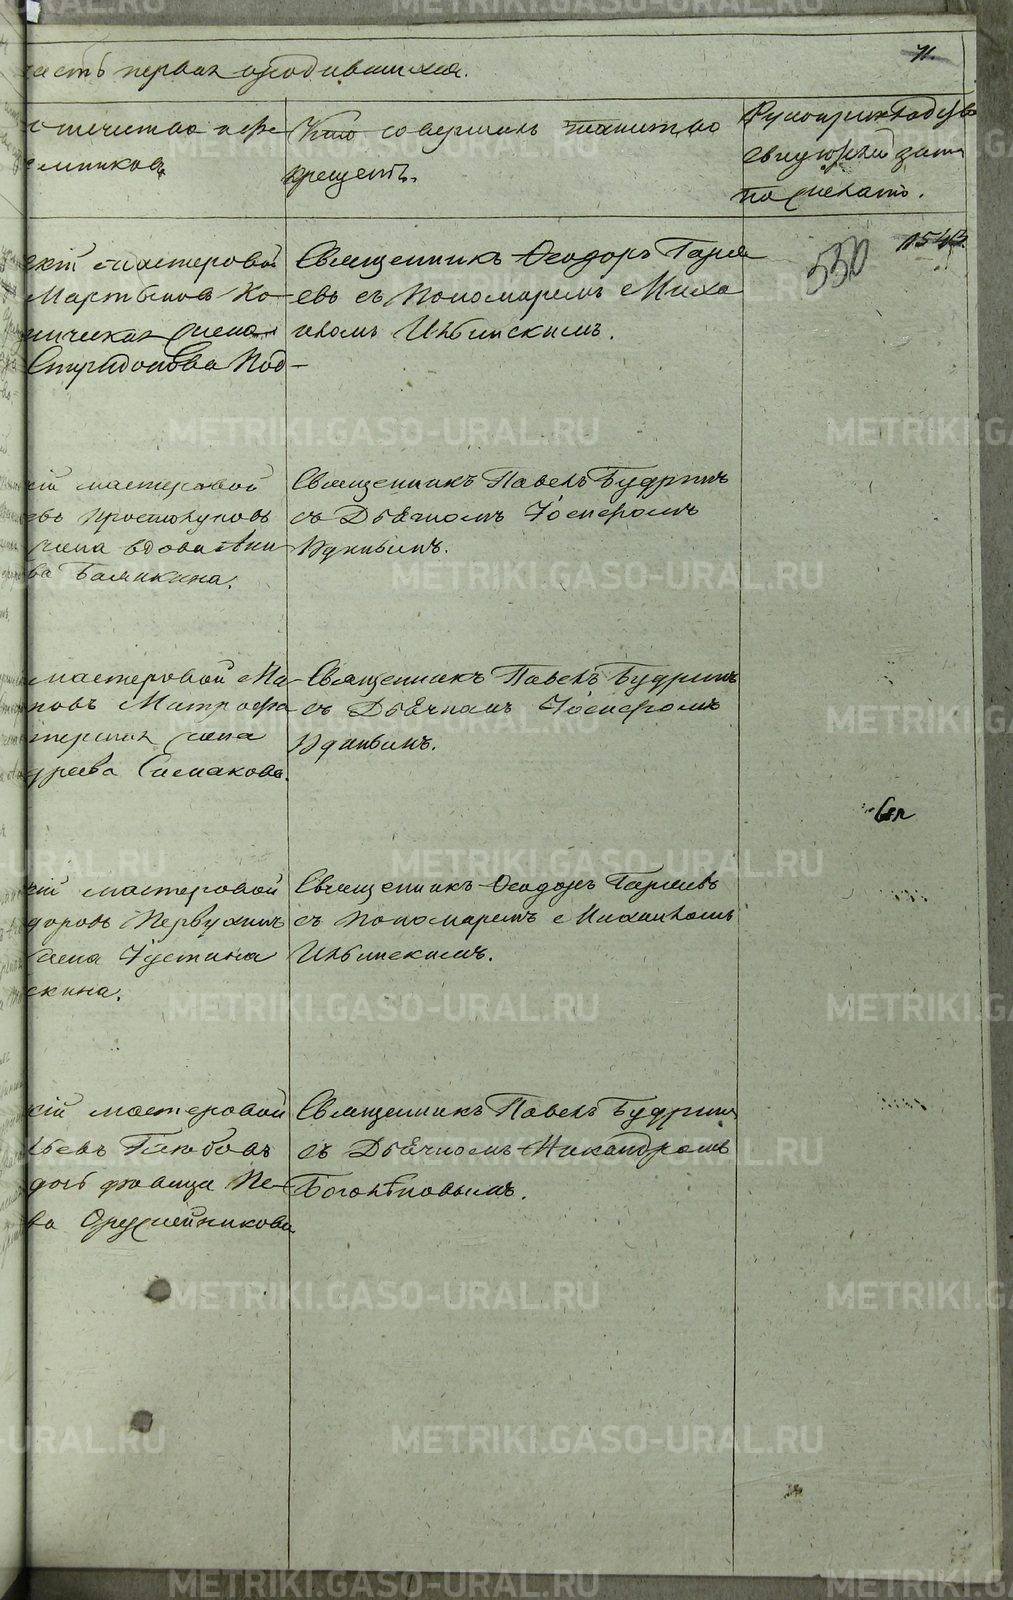 71.
часть первая о родившихся.
отчество пріе-
емниковъ
Кто совершалъ таинство
крещенія.
Рукоприкладство
свидѣтелей записи
по желанію.
скій мастеровой
Мартыновъ Ко-
ническая жена
Спиридонова Под-
Священникъ Ѳеодоръ Гаря
евъ съ Пономаремъ Миха
иломъ Ильинскимъ.
530
1543
кій мастеровой
евъ Простолуповъ
жена вдова
ва Балакина.
Священникъ Павелъ Будринъ
съ Дьячкомъ Іосифомъ
Удинцовымъ.
мастеровой Ма-
новъ Митрофа
жена
дреева Симакова.
Священникъ Павелъ Будринъ
съ Дьячкомъ Іосифомъ
Удинцовымъ.
кій мастеровой
доровъ Первухинъ
жена Іустина
скина.
Священникъ Ѳеодоръ Гаряевъ
съ Пономаремъ Михаиломъ
Ильинскимъ.
кій мастеровой
ьевъ Глѣбовъ
дочь дѣвица Пе-
ва Оружейникова
Священникъ Павелъ Будринъ
съ Дьячкомъ Никандромъ
Боголѣповымъ.
METRIKI.GASO-URAL.RU